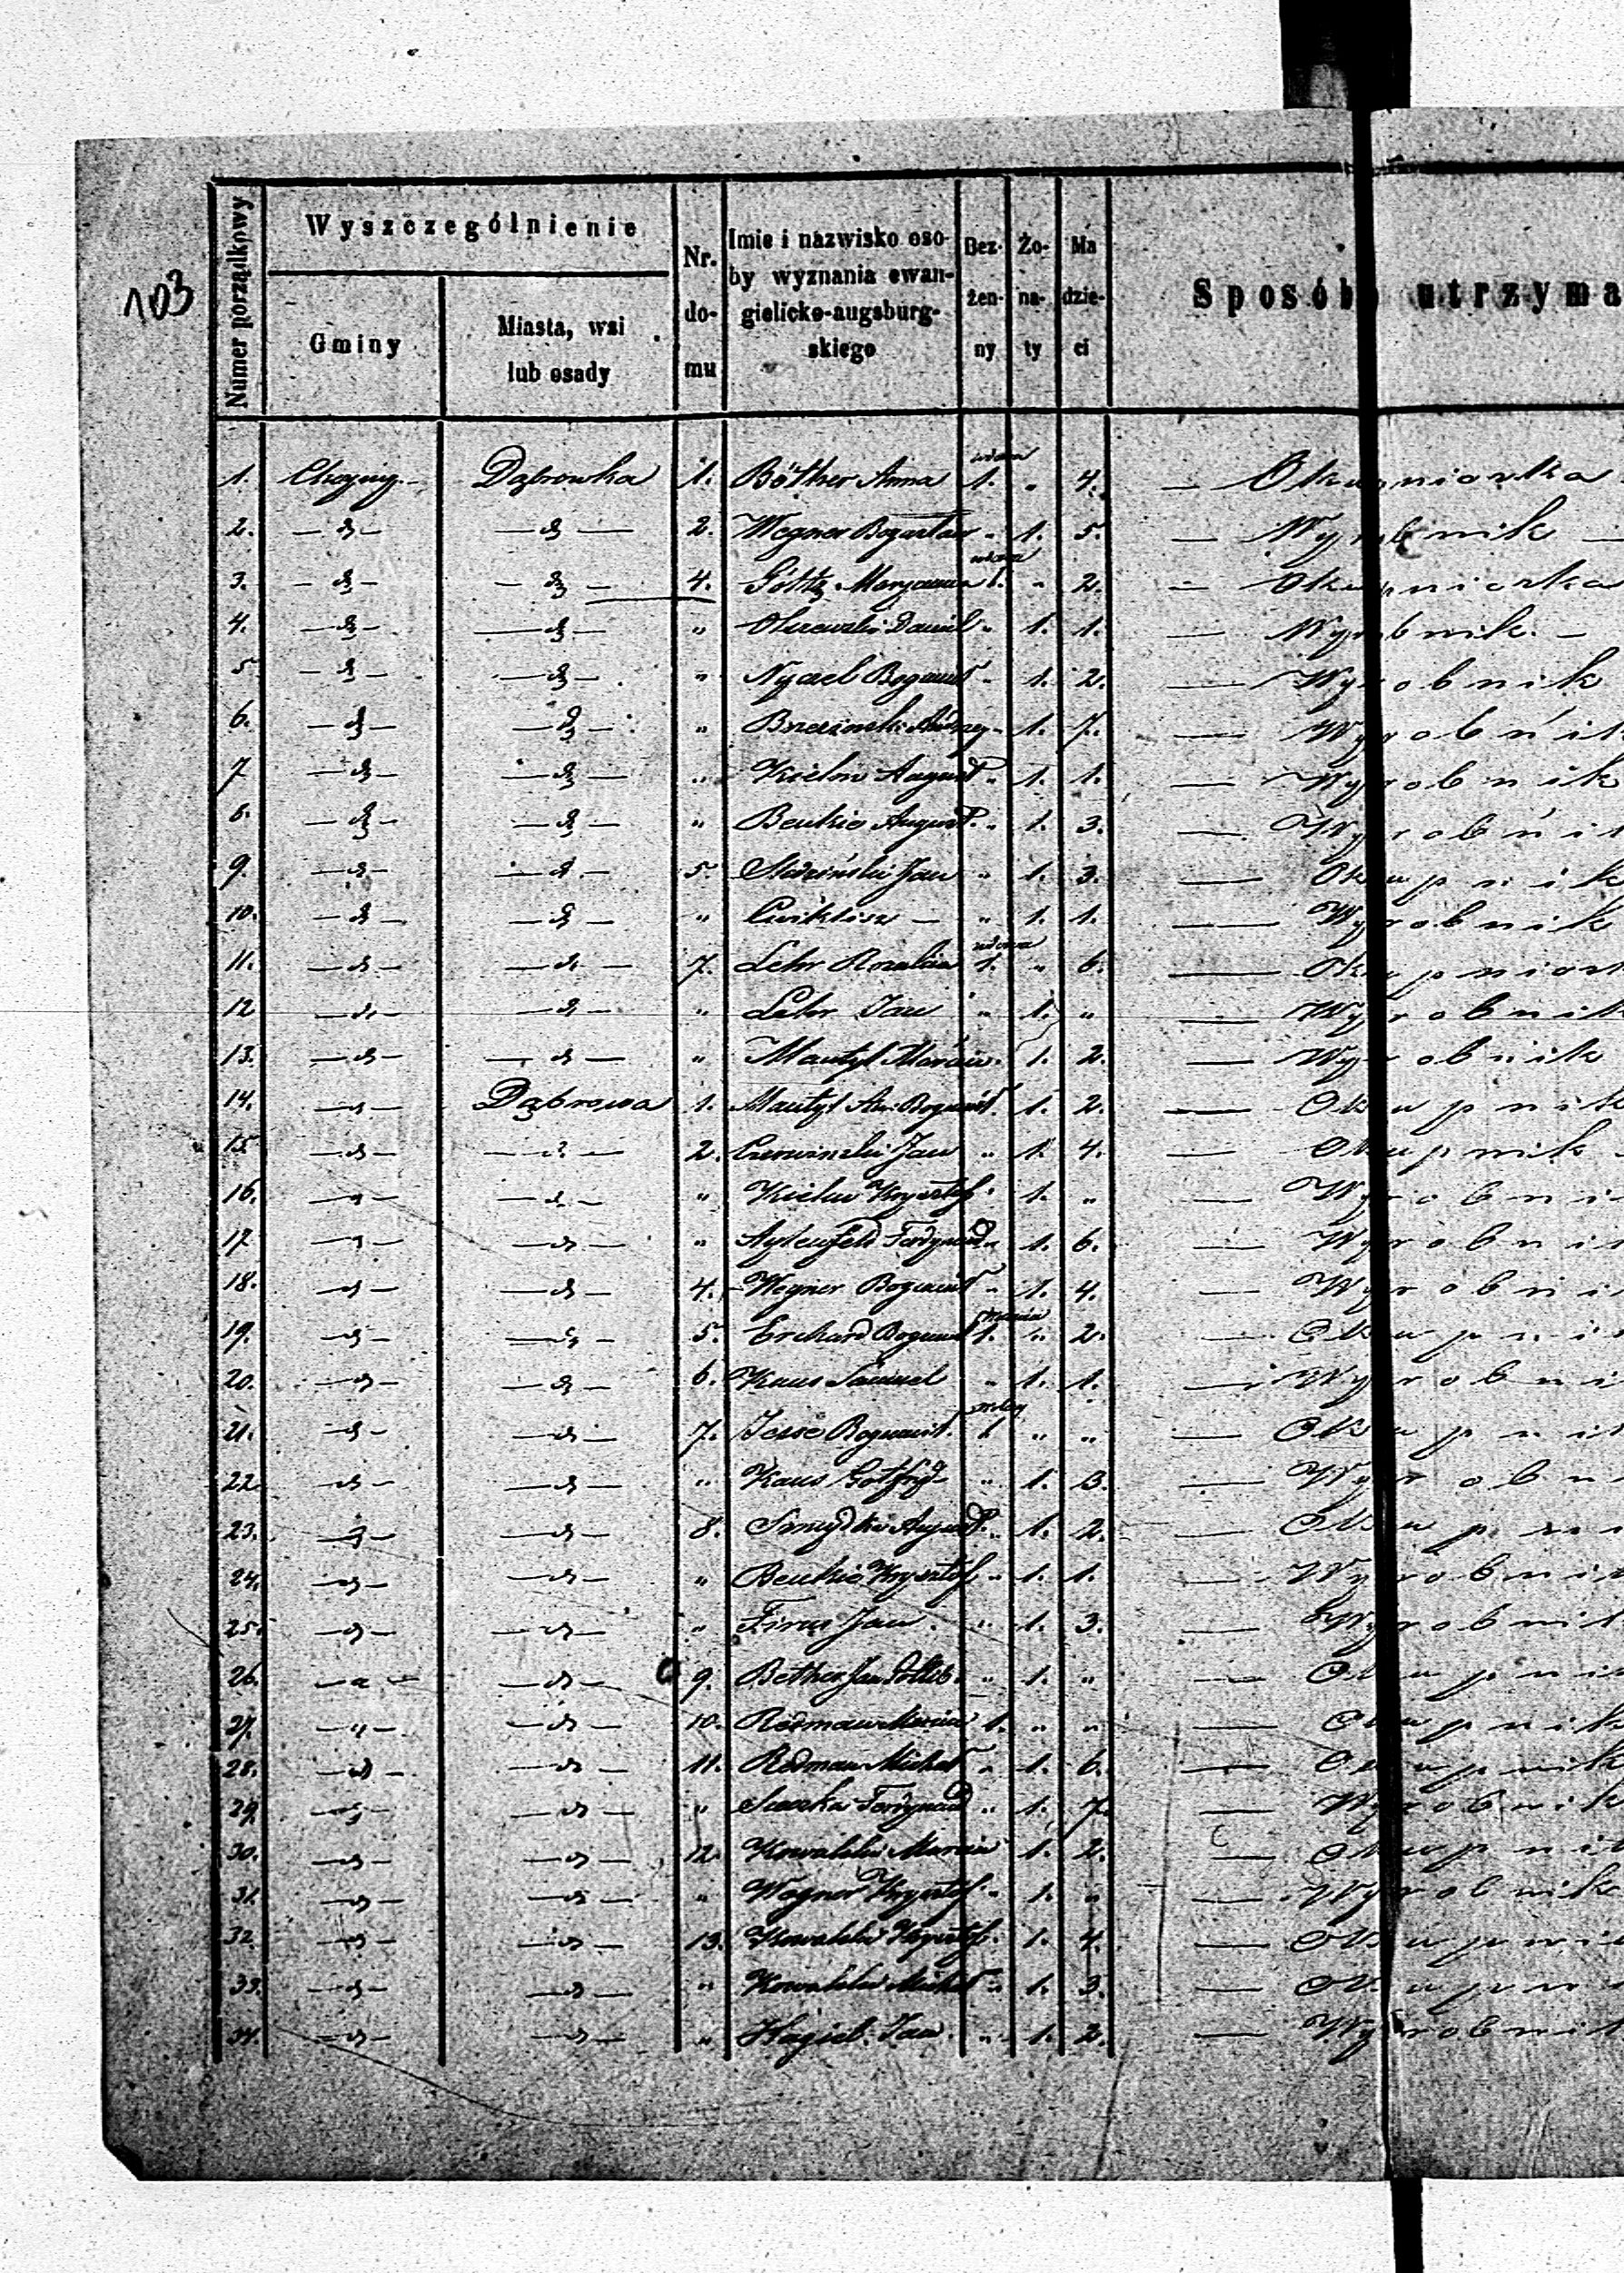 103
Numer porządkowy
Wyszczególnienie
Gminy
Miasta, wsi
lub osady
Nr.
do-
mu
Imie i nazwisko oso-
by wyznania ewan-
gielicko-augsburg-
skiego
Bez-
żen-
ny
Żo-
na-
ty
Ma
dzie-
ci
Sposób utrzyma
1. Dąbrowka 1. Böther Anna wdowa 1. " 4. — Okupniarka
2. — d — — d — 2. Wegner " 1. 5. — Wyrobnik —
3. — d — — d — 4. Maryanna wdowa 1. " 2. — Okupniarka
4. — d — — d — " Olszewski Daniel " 1. 1. — Wyrobnik. —
5 — d — — d — " Bogumił " 1. 2. — Wyrobnik
6. — d — — d — " " 1. 7. — Wyrobnik
7 — d — — d — " August " 1. 1. — Wyrobnik
8. — d — — d — " Beutkie August " 1. 3. — Wyrobni
9. — d — — d — 5. Jan " 1. 3. — Okupnik
10. — d — — d — " — " 1. 1. — Wyrobnik
11. — d — — d — 7. Lehr Rozalia wdowa 1. " 6. — Okupniar
12 — d — — d — " Lehr Jan " 1. " — Wyrobnik
13. — d — — d — " Mantyl Marcin " 1. 2. — Wyrobnik
14. — d — Dąbrowa 1. Mantyl Bogumił " 1. 2. — Okupnik
15. — d — — d — 2. Czerwinski Jan " 1. 4. — Okupnik
16. — d — — d — " Krysztof " 1. " — Wyrobni
17. — d — — d — " Ferdynand " 1. 6. — Wyrobni
18. — d — — d — 4. Wegner Bogumił " 1. 4. — Wyrobni
19. — d — — d — 5. Erchard Bogumił 1. " 2. — Okupni
20. — d — — d — 6. Kaus Samuel " 1. 1. — Wyrobni
21. — d — — d — 7. Jesse Bogumił 1 " " — Okupnik
22. — d — — d — " Kaus Gotfryd " 1. 3. — Wyrobn
23. — d — — d — 8. August " 1. 2. — Okupni
24. — d — — d — " Beutkie Krysztof " 1. 1. — Wyrobnik
25. — d — — d — " Jan " 1. 3. — Wyrobnik
26. — d — — d — 9. Bether Jan " 1. " — Okupni
27. — d — — d — 10. Redman Marcin 1. " " — Okupnik
28. — d — — d — 11. Redman Michał " 1. 6. — Okupnik
29. — d — — d — " Ferdynand " 1. 7. — Wyrobnik
30. — d — — d — 12. Kowalski Marcin 1. 2. — Okupnik
31. — d — — d — " Wegner Krysztof " 1. " — Wyrobnik
32. — d — — d — 13. Kowalski Krysztof 1. 4. — Okupni
33. — d — — d — " Kowalski Michał " 1. 3. — Okupn
34. — d — — d — " Jan " 1. 2. — Wyrobnik